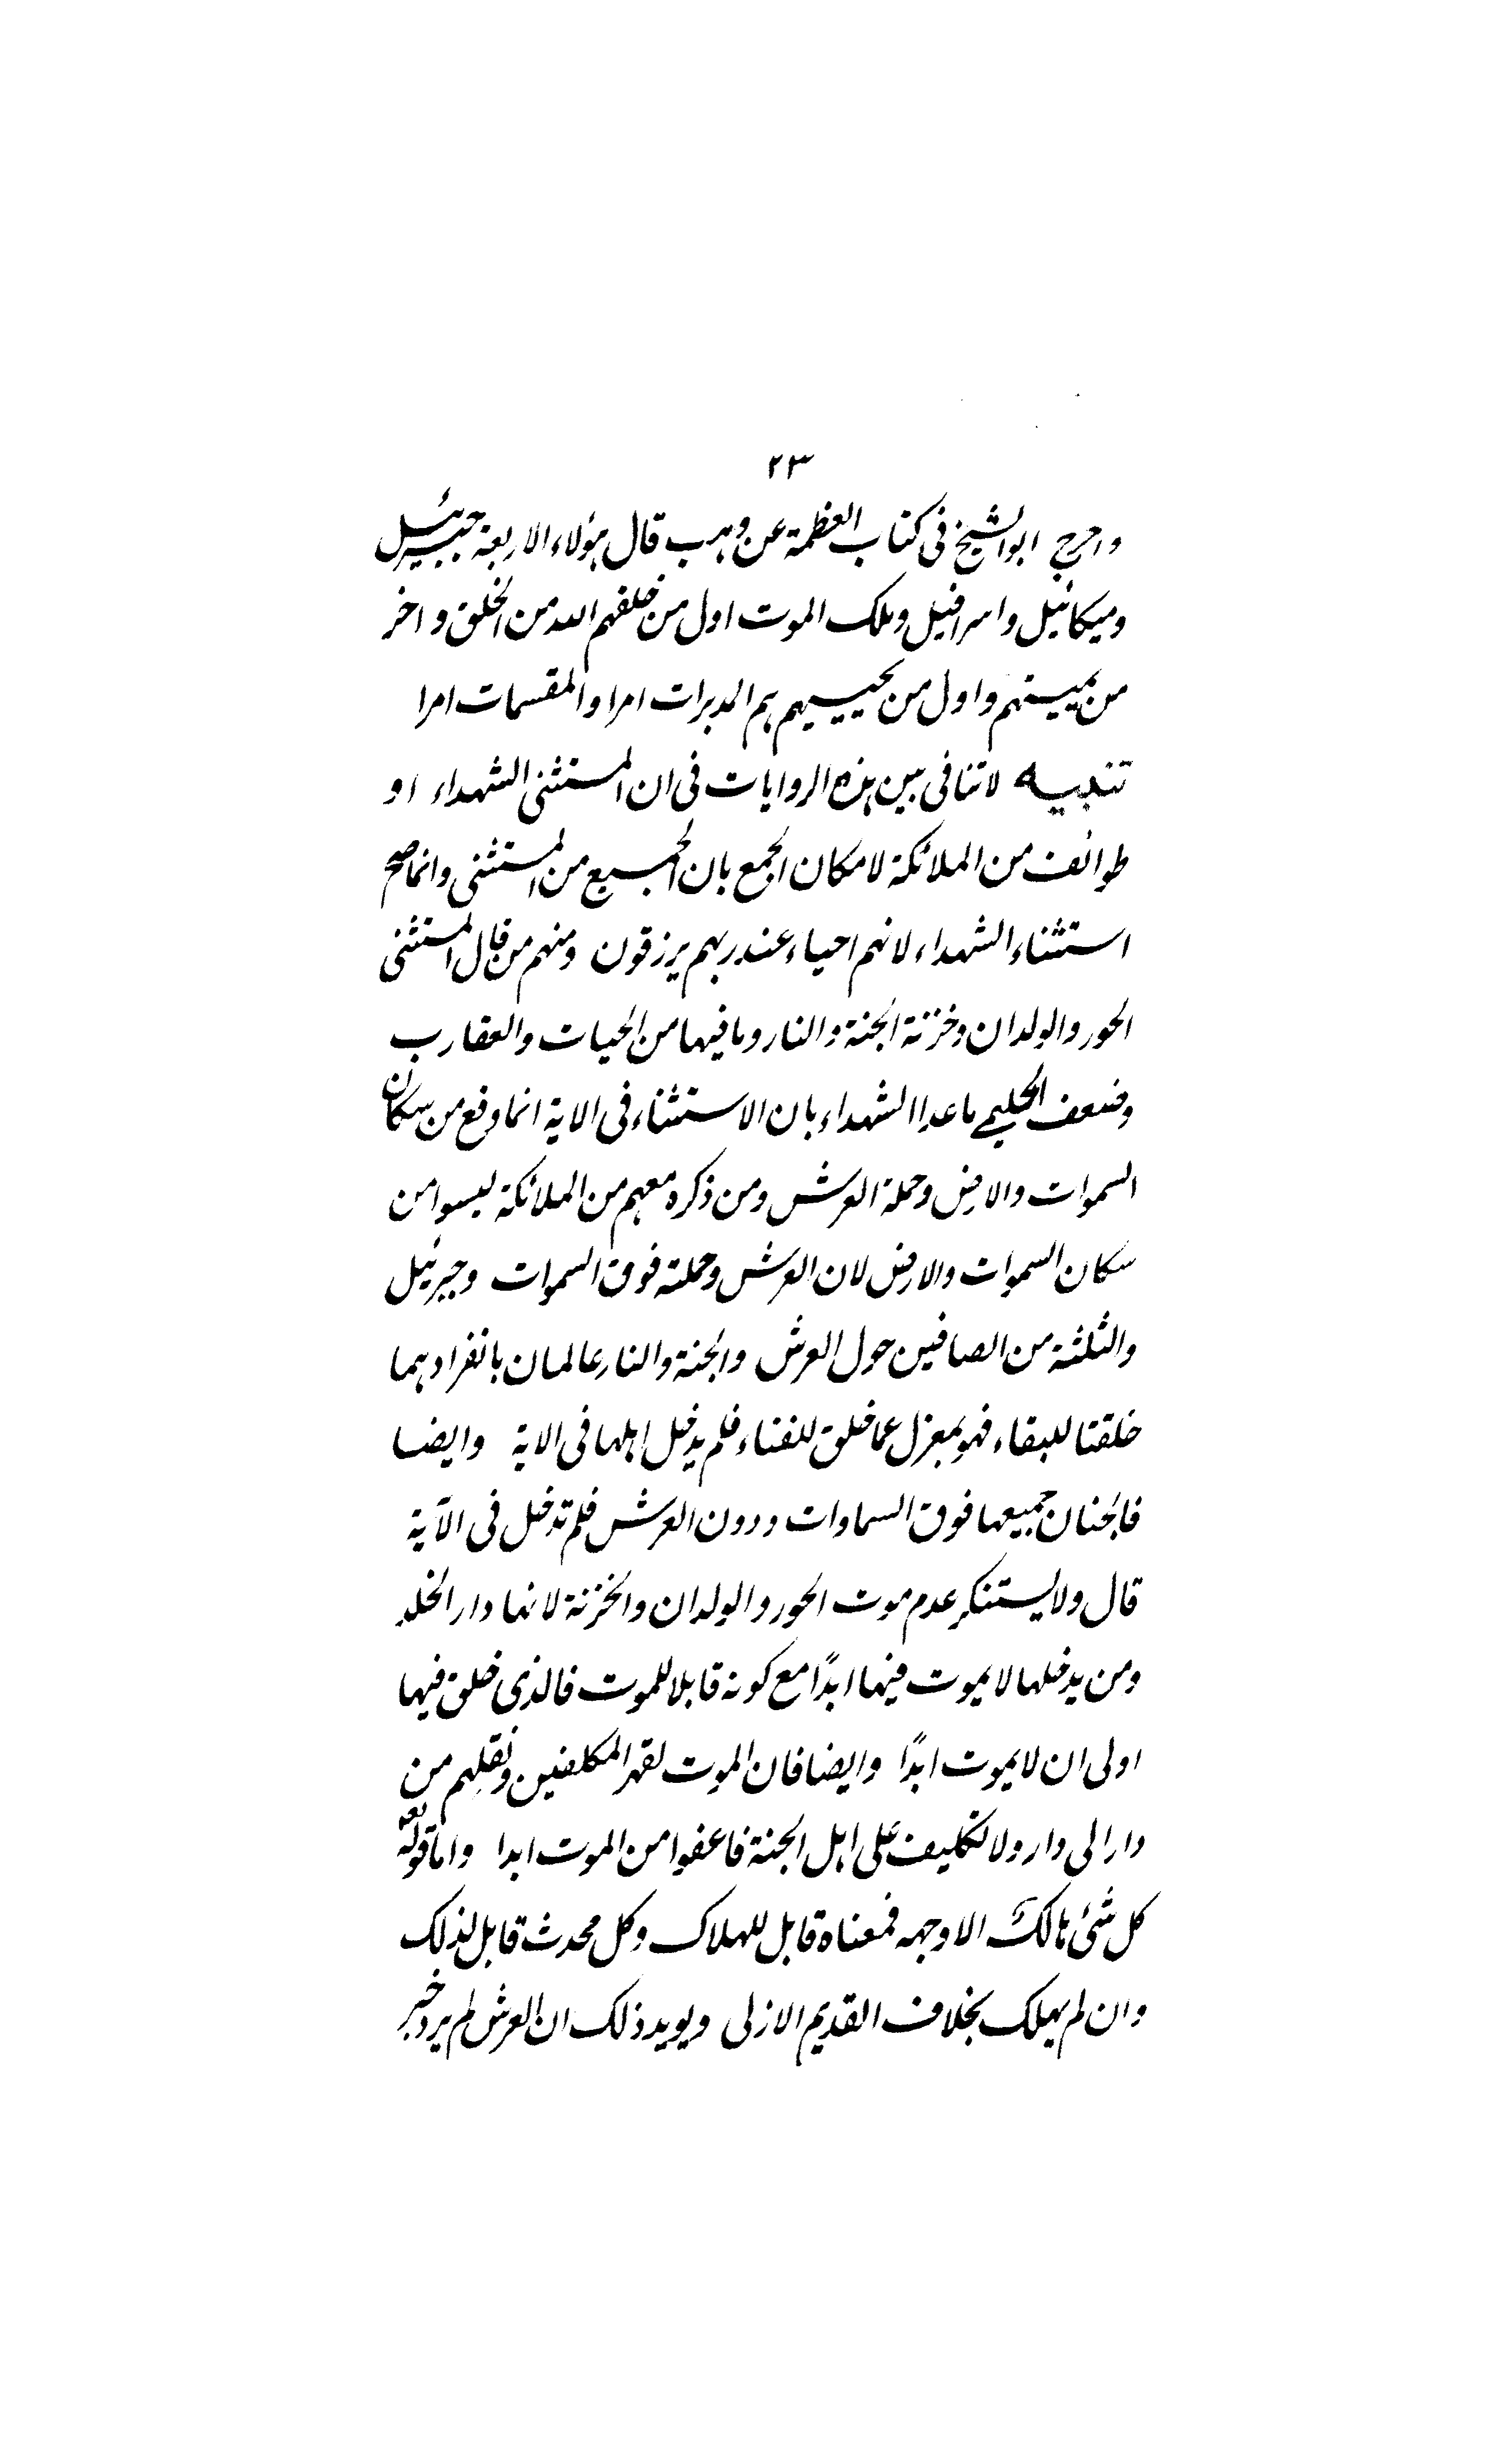 ٢٣
واخرج ابو الشيخ فى كتاب العظمة عن وهب قال هؤلاء الاربعة جبرئيل
وميكائيل واسرافيل وملك الموت اول من خلقهم الله من الخلق واخر
من يميتهم واول من يحييهم هم المدبرات امرا والمقسمات امرا
تنبيه لا تنافى بين هذه الروايات فى ان المستثنى الشهداء او
طوائف من الملائكة لامكان الجمع بان الجميع من المستثنى وانما صح
استثناء الشهداء لانهم احياء عند ربهم يرزقون ومنهم من قال المستثنى
الحور والولدان وخزنة الجنة والنار وما فيها من الحيات والعقارب
وضعف الحليمى ما عدا الشهداء بان الاستثناء فى الاية انما وقع من سكان
السموات والارض وحملة العرش ومن ذكره معهم من الملائكة ليسوا من
سكان السموات والارض لان العرش وحملته فوق السموات وجبرئيل
والثلثة من الصافين حول العرش والجنة والنار عالمان بانفرادهما
خلقتا للبقاء فهو بمعزل عما خلق للفناء فلم يدخل اهلها فى الاية وايضا
فالجنان جميعها فوق السماوات ودون العرش فلم تدخل فى الآية
قال ولا يستنكر عدم موت الحور والولدان والخزنة لانها دار الخلد
ومن يدخلها لا يموت فيها ابدًا مع كونه قابلا للموت فالذى خلق فيها
اولى ان لا يموت ابدًا وايضا فان الموت لقهر المكلفين ونقلهم من
دار الى دار ولا تكليف على اهل الجنة فاعفوا من الموت ابدا واما قوله تع
كل شئ هالك الا وجهه فمعناه قابل للهلاك وكل محدث قابل لذلك
وان لم يهلك بخلاف القديم الازلى ويويد ذلك ان العرش لم يرد خبر